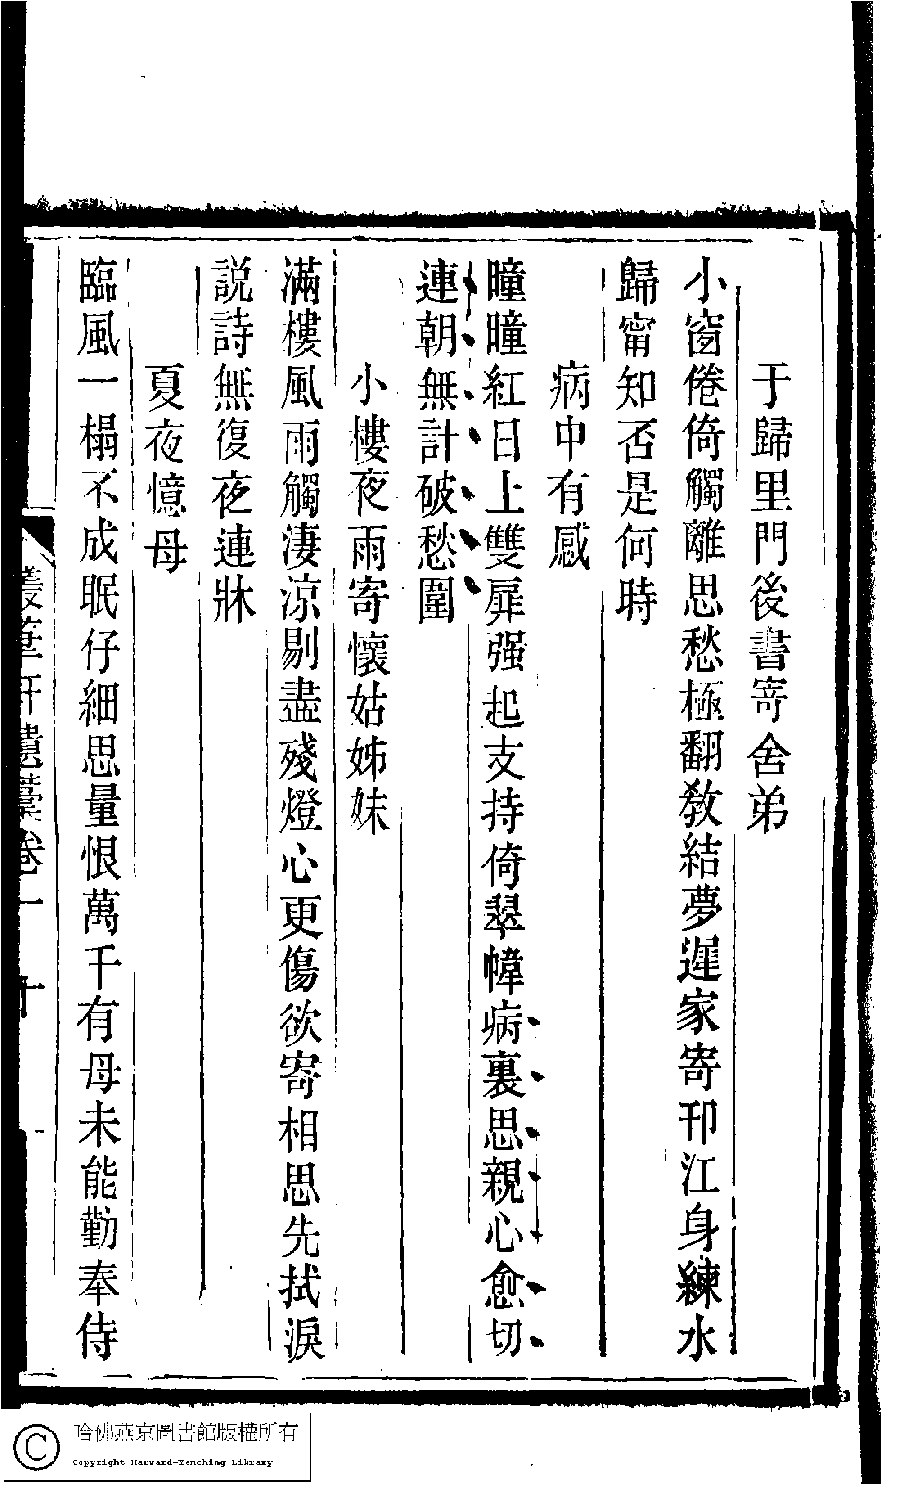 于歸里門後書寄舍弟
小窗倦倚觸離思愁極翻教結夢遲家寄邗江身練水
歸甯知否是何時
病中有感
曈曈紅日上雙扉强起支持倚翠幃病裏思親心愈切
連朝無計破愁圍
小樓夜雨寄懷姑姊妹
滿樓風雨觸淒涼剔盡殘燈心更傷欲寄相思先拭淚
説詩無復夜連牀
夏夜憶母
臨風一榻不成眠仔細思量恨萬千有母未能勤奉侍
遺藁卷一
十
哈佛燕京圖書館版權所有
Copyright Harvard-Yenching Library